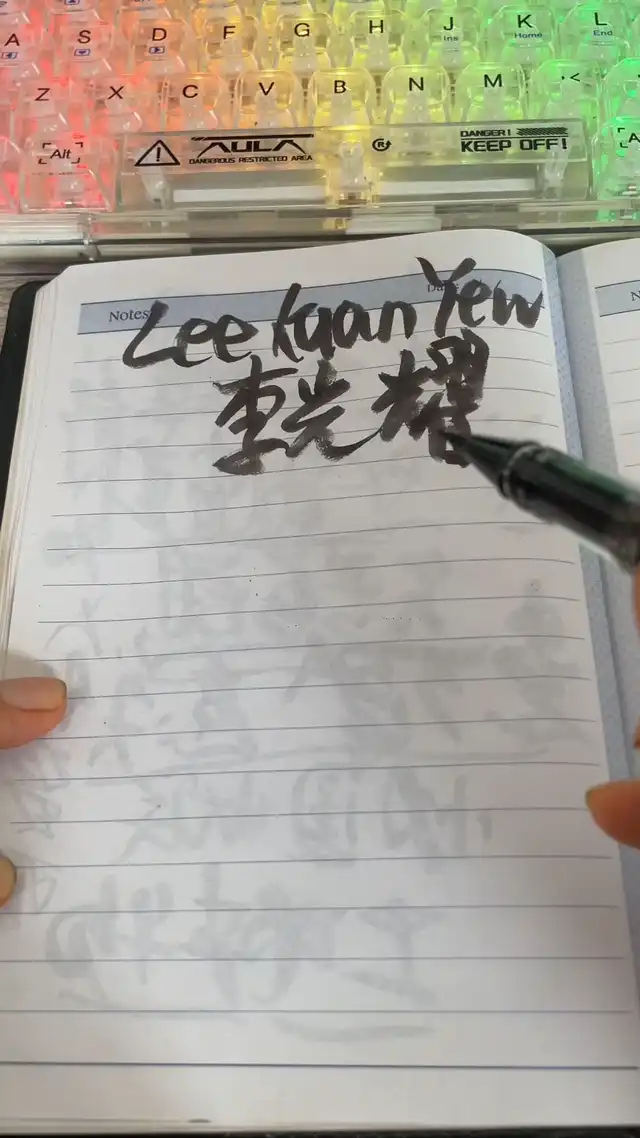 A S D F G H J K L
Ins Home End
Z X C V B N M <
Alt AULA DANGEROUS RESTRICTED AREA ® DANGER! KEEP OFF!
Notes
Lee Kuan Yew
李光耀